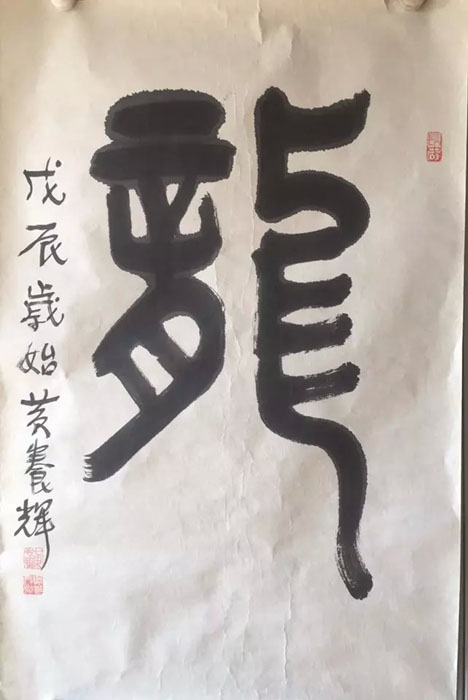 龍
戊辰歲始黃養輝